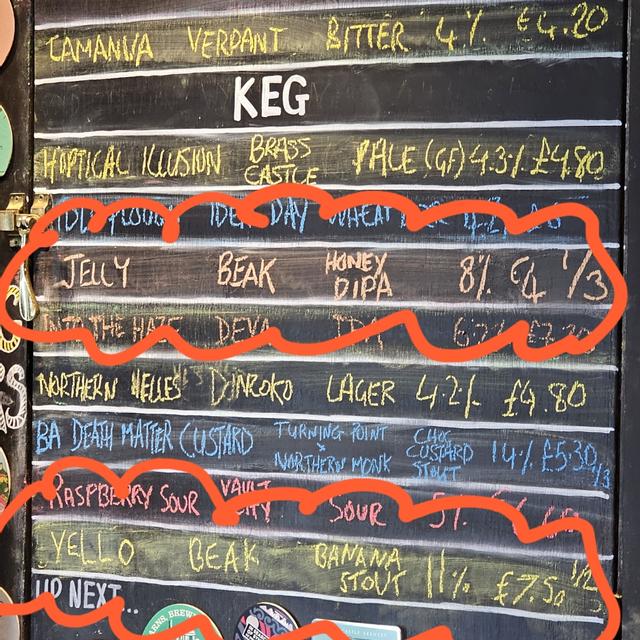 TAMANVA VERDANT BITTER 4% £4.20
KEG
HOPTICAL ILLUSION BRASS CASTLE PALE (GF) 4.3% £4.80
DAY WHEAT
JELLY BEAK HONEY DIPA 8% £4 1/3
INTO THE HAZE DEYA IPA
NORTHERN HELLES DONZOKO LAGER 4.2% £4.80
BA DEATH MATTER CUSTARD TURNING POINT X NORTHERN MONK CHOC CUSTARD STOUT 14% £5.30 1/3
RASPBERRY SOUR VAULT CITY SOUR 5%
YELLO BEAK BANANA STOUT 11% £7.50 1/2
UP NEXT...